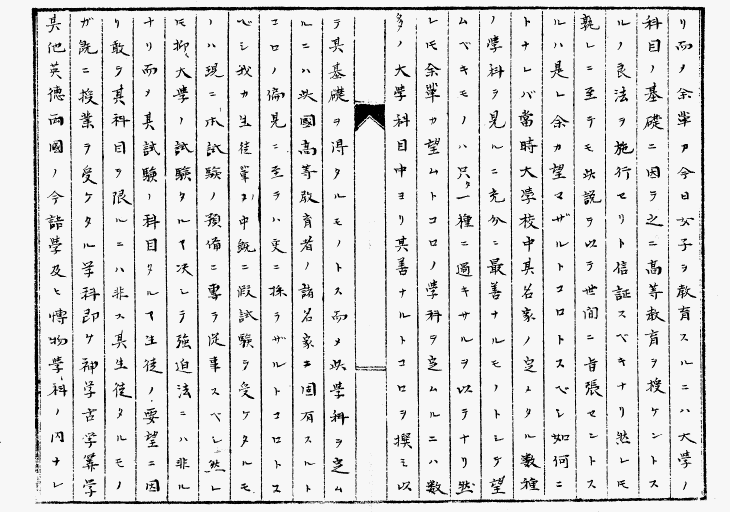 リ而メ余輩カ今日女子ヲ教育スルニハ大學ノ
科目ノ基礎ニ因ラ之ニ高等教育ヲ授ケントス
ルノ良法ヲ施行セリト信証スベキナリ然レモ
孰レニ至テモ此説ヲ以テ世間ニ首張セントス
ルハ是レ余カ望マザルトコロトスベシ如何ニ
トナレバ當時大学校中其名家ノ定メタル数種
ノ學科ヲ見ルニ充分ニ最善ナルモノトシテ望
ムベキモノハ只タ一種ニ過キサルヲ以テナリ然
レモ余輩カ望ムトコロノ學科ヲ定ムルニハ数
多ノ大學科目中ヨリ其善ナルトコロヲ撰ミ以
テ其基礎ヲ得タルモノトス而メ此學科ヲ定ム
ルニハ此國高等教育者ノ諸名家ニ固有スルト
コロノ偏見ニ至テハ更ニ採ラザルトコロトス
ベシ我カ生徒輩ノ中既ニ假試驗ヲ受ケタルモ
ノハ現ニ本試驗ノ預備ニ專ラ從事スベシ然レ
モ抑大學ノ試驗タルヤ决シテ強迫法ニハ非ル
ナリ而メ其試驗ノ科目タルヤ生徒ノ要望ニ因
リ敢テ其科目ヲ限ルニハ非ス其生徒タルモノ
ガ既ニ授業ヲ受ケタル学科即ケ神学古学筭学
其他英德両國ノ今語學及ヒ博物學科ノ内ナレ